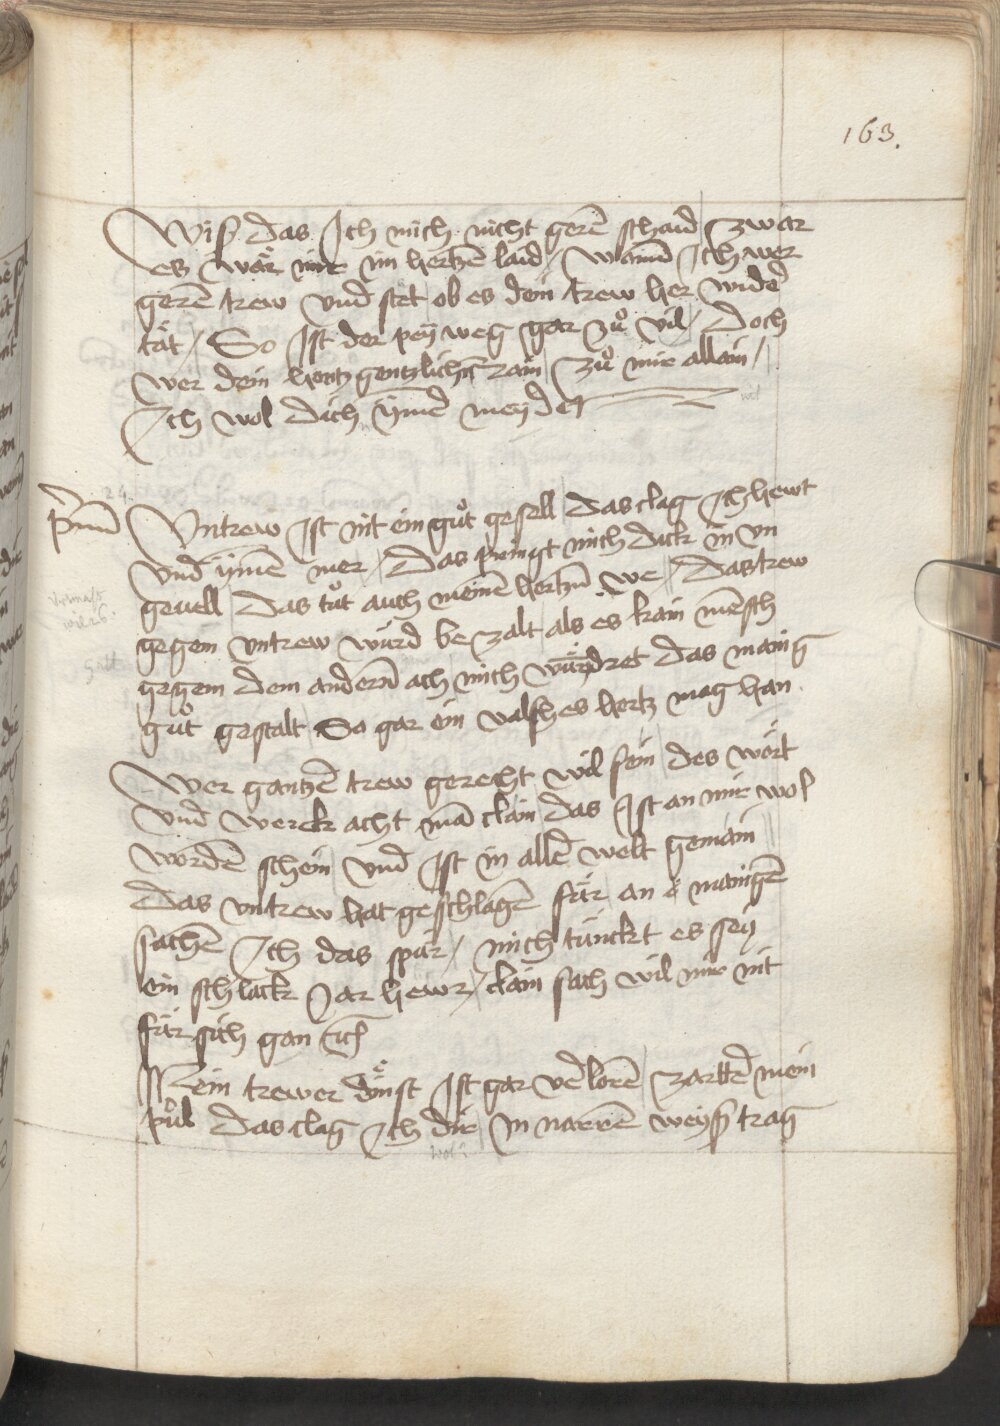 163.
Wiß das Ich mich nicht gerē schaid zwar
es wär mir im hertzē laid / Wann Ich wer
gerē trew vnd stet ob es dein trew her widē
tät / So Ist der pey weg gar zů vil / Doch
wer dein hertz gentzlichñ rain zů mir allain /
Ich wol dich ÿmē meyden
24.
Vntrew Ist nit ein gůt gesell das clag Ich hewt
vnd ÿmē mer / Das pringt mich dick in vn
geuell das tůt auch meinē hertzñ we / Das trew
gegem vntrew würd be zalt als es kain mēsch
gegem dem andern ach mich wundret das manig
gůt gestalt So gar ein valsches hertz mag han
Wer gantzē trew gerecht wil sein des wort
vnd werck acht mā clain das Ist an mir wol
wordē schein vnd Ist in allē welt gemain
Das vntrew hat geschlagē für an manigē
sachē Ich das spür / mich tünckt es sey
ein schlack Jar hewr / clain sach wil mir nit
für sich gan
Mein trewer dinst Ist gar vē lorē zarttē mein
půl das clag Ich dir In narrē weyß trag